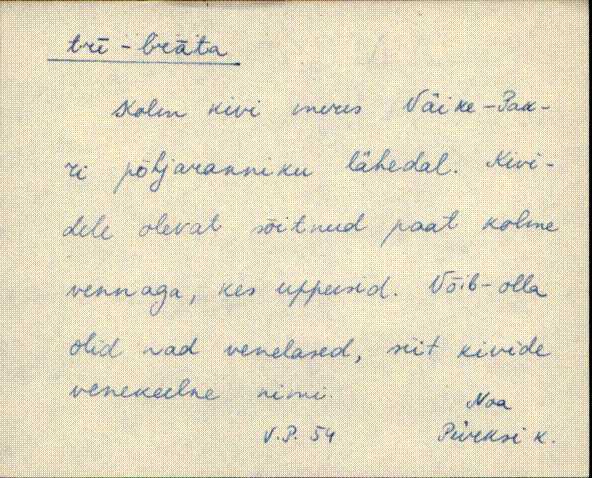 trī - brāta
Kolm kivi meres Väike-Pak-
ri põhjaranniku lähedal. Kivi-
dele olevat sõitnud paat kolme
vennaga, kes uppusid. Võib-olla
olid nad venelased, siit kivide
venekeelne nimi.
Noa
V.P. 54 k.